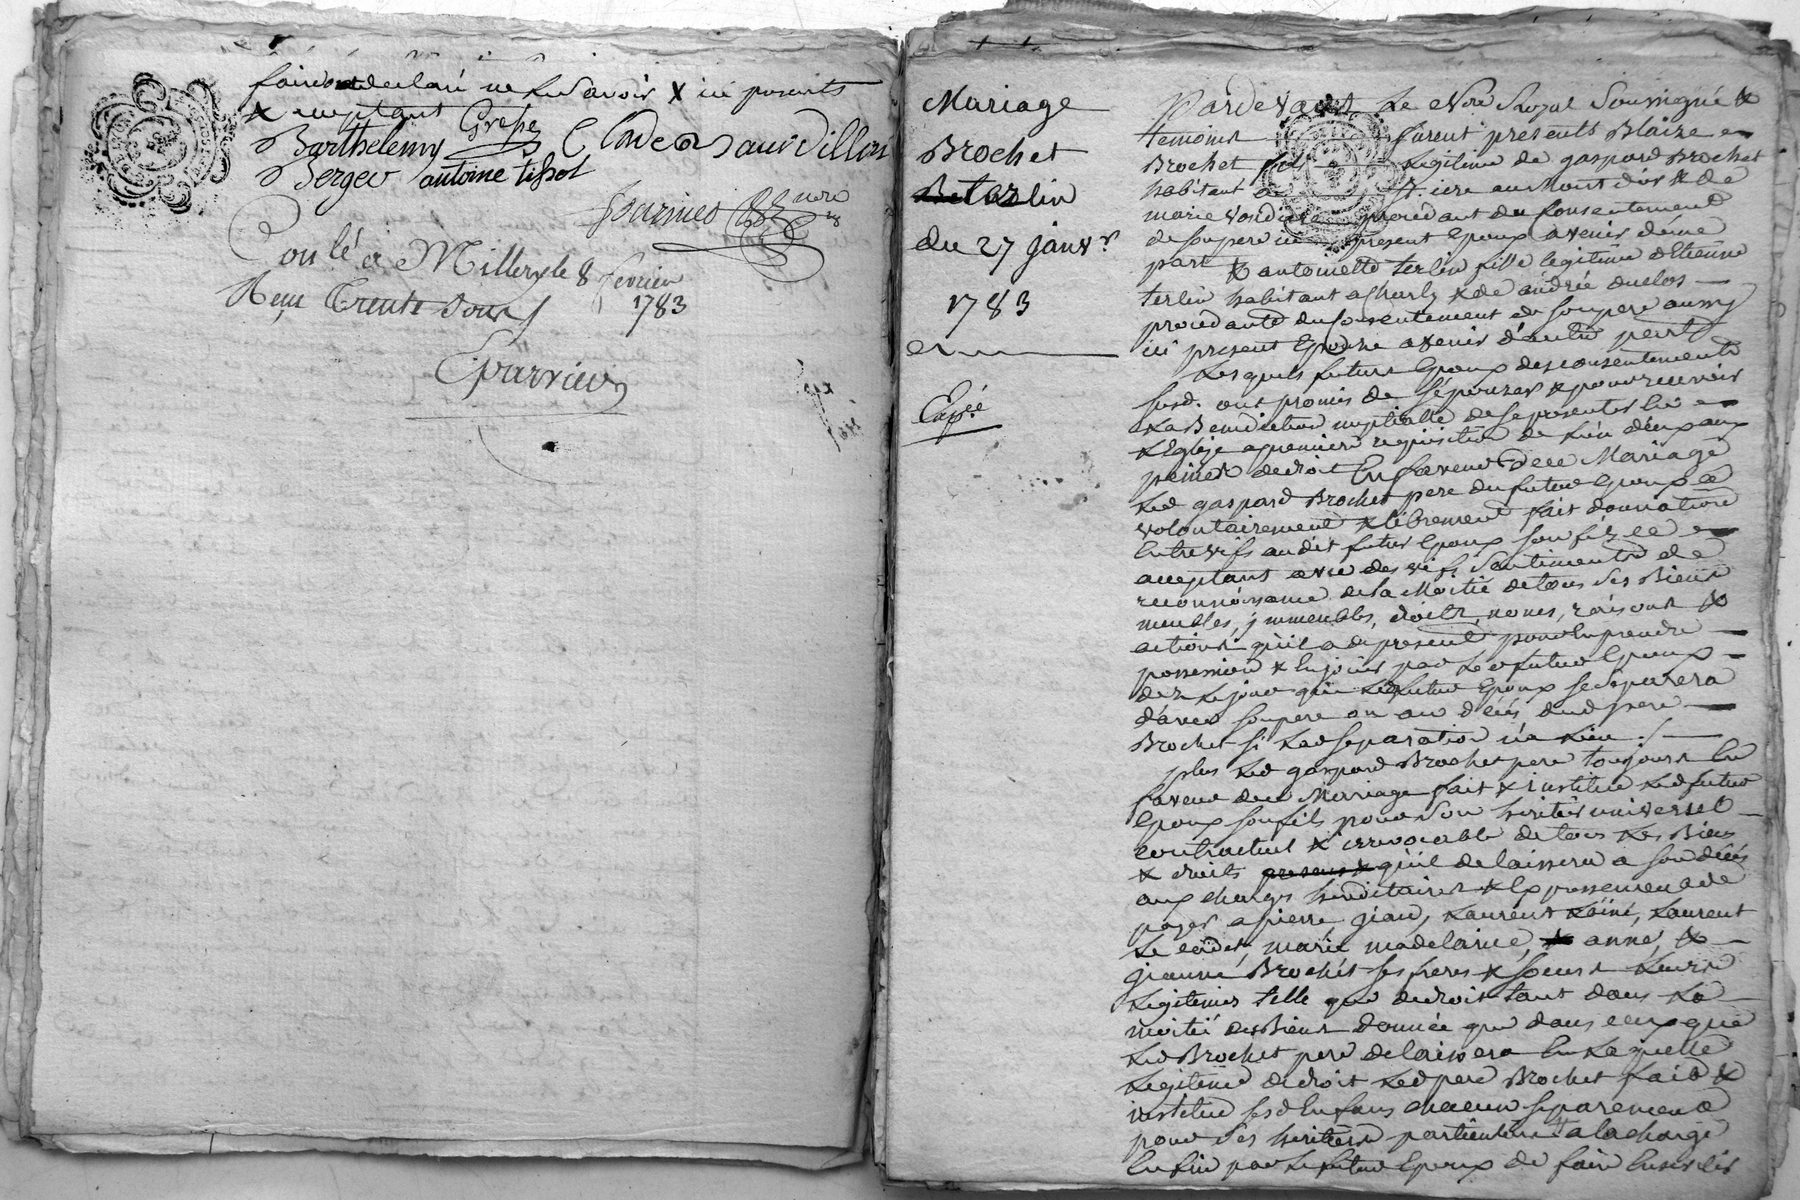 faire ont declaré ne le savoir & ici presents
& acceptant Grepe
Barthelemy
Berger antoine tissot
fournier
Conlé a Millery le 8 fevrier
Reçu trente sous 1783
Eparvier
Mariage
Brochet
terlin
du 27 janvr
1783
Exp.ée
Pardevant Le Nore Royal Soussigné &
temoins furent presents Blaise
Brochet fils legitime de gaspard Brochet
habitant au mont d'or & de
marie procedant du Consentement
de son pere ici present Epoux avenir d'une
part & antoinette terlin fille legitime d'Etienne
terlin habitant a Charly & de andrée duclos
procedante du Consentement de son pere aussy
ici present Epouse avenir d'autre part
Lesquels futurs Epoux des consentements
susd. ont promis de s'épouser & pour recevoir
La Benediction nuptialle de se presenter en
L'Eglise a premiere requisition de L'un d'eux aux
peines de droit En faveur dece Mariage
Led gaspard Brochet pere du futur Epoux a
volontairement & librement fait donnation
Entrevifs audit futur Epoux son fils ce
acceptant avec des vifs sentiments de
reconnoissance de la Moitié de tous ses Biens
meubles, jmmeubles, droits, noms, raisons &
actions qu'il a de present pour En prendre
possession & En jouir par Led futur Epoux
dez Le jour que Led futur Epoux se separera
d'avec son pere ou au décés dud pere
Brochet si Lad separation n'a Lieu ./.
plus Led gaspard Brochet pere toujours En
faveur dud Mariage fait & institue Led futur
Epoux son fils pour son heritier universel
contractuel & irrevocable de tous Les Biens
& droits qu'il delaissera a son décés
aux charges hereditaires & Expressement de
payer a pierre, jean, Laurent L'ainé, Laurent
Le cadet, marie madelaine, anne, &
jeanne Brochet ses freres & soeurs Leurs
Legitimes telle que de droit tant dans La
moitié des Biens donnée que dans ceux que
Led Brochet pere delaissera En Laquelle
Legitime de droit Led pere Brochet fait &
institue sesd Enfans chacun separement
pour ses heritiers particuliers a la charge
Enfin par Le futur Epoux de faire Ensevelir